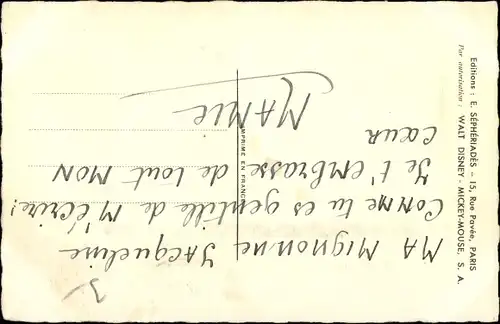 MA Mignonne Jacqueline
COMME tu es gentille de M'écrire!
Je t'EMBRASSE de tout MON
cœur
MAMIE
IMPRIMÉ EN FRANCE
Editions : E. SÉPHÉRIADÈS - 15, Rue Pavée, PARIS
Par autorisation : WALT DISNEY - MICKEY-MOUSE, S. A.